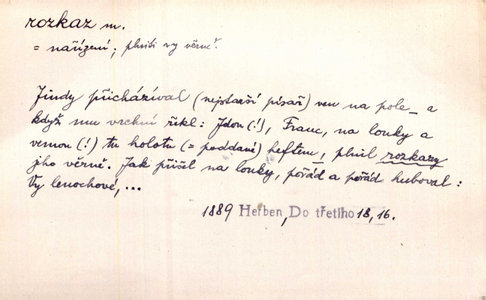 rozkaz m.
= nařízení; plnili vy věrně.
Jindy přicházíval (nejstarší písař) ven na pole_ a
když mu vrchní řekl: Jdou (!), Franc, na louky a
vemou (!) tu holotu (= poddané) heftem_, plnil rozkazy
jeho věrně. Jak přišel na louky, pořád a pořád huboval:
Vy lenochové, ...
1889 Herben, Do třetího 18, 16.